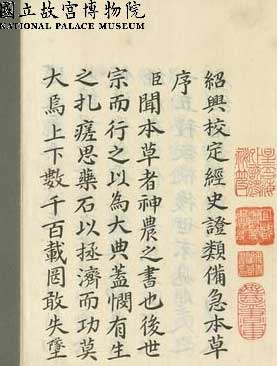 國立故宮博物院
NATIONAL PALACE MUSEUM
紹興校定經史證類備急本草
序
臣聞本草者神農之書也後世
宗而行之以為大典蓋憫有生
之札瘥思藥石以拯濟而功莫
大焉上下數千百載罔敢失墜